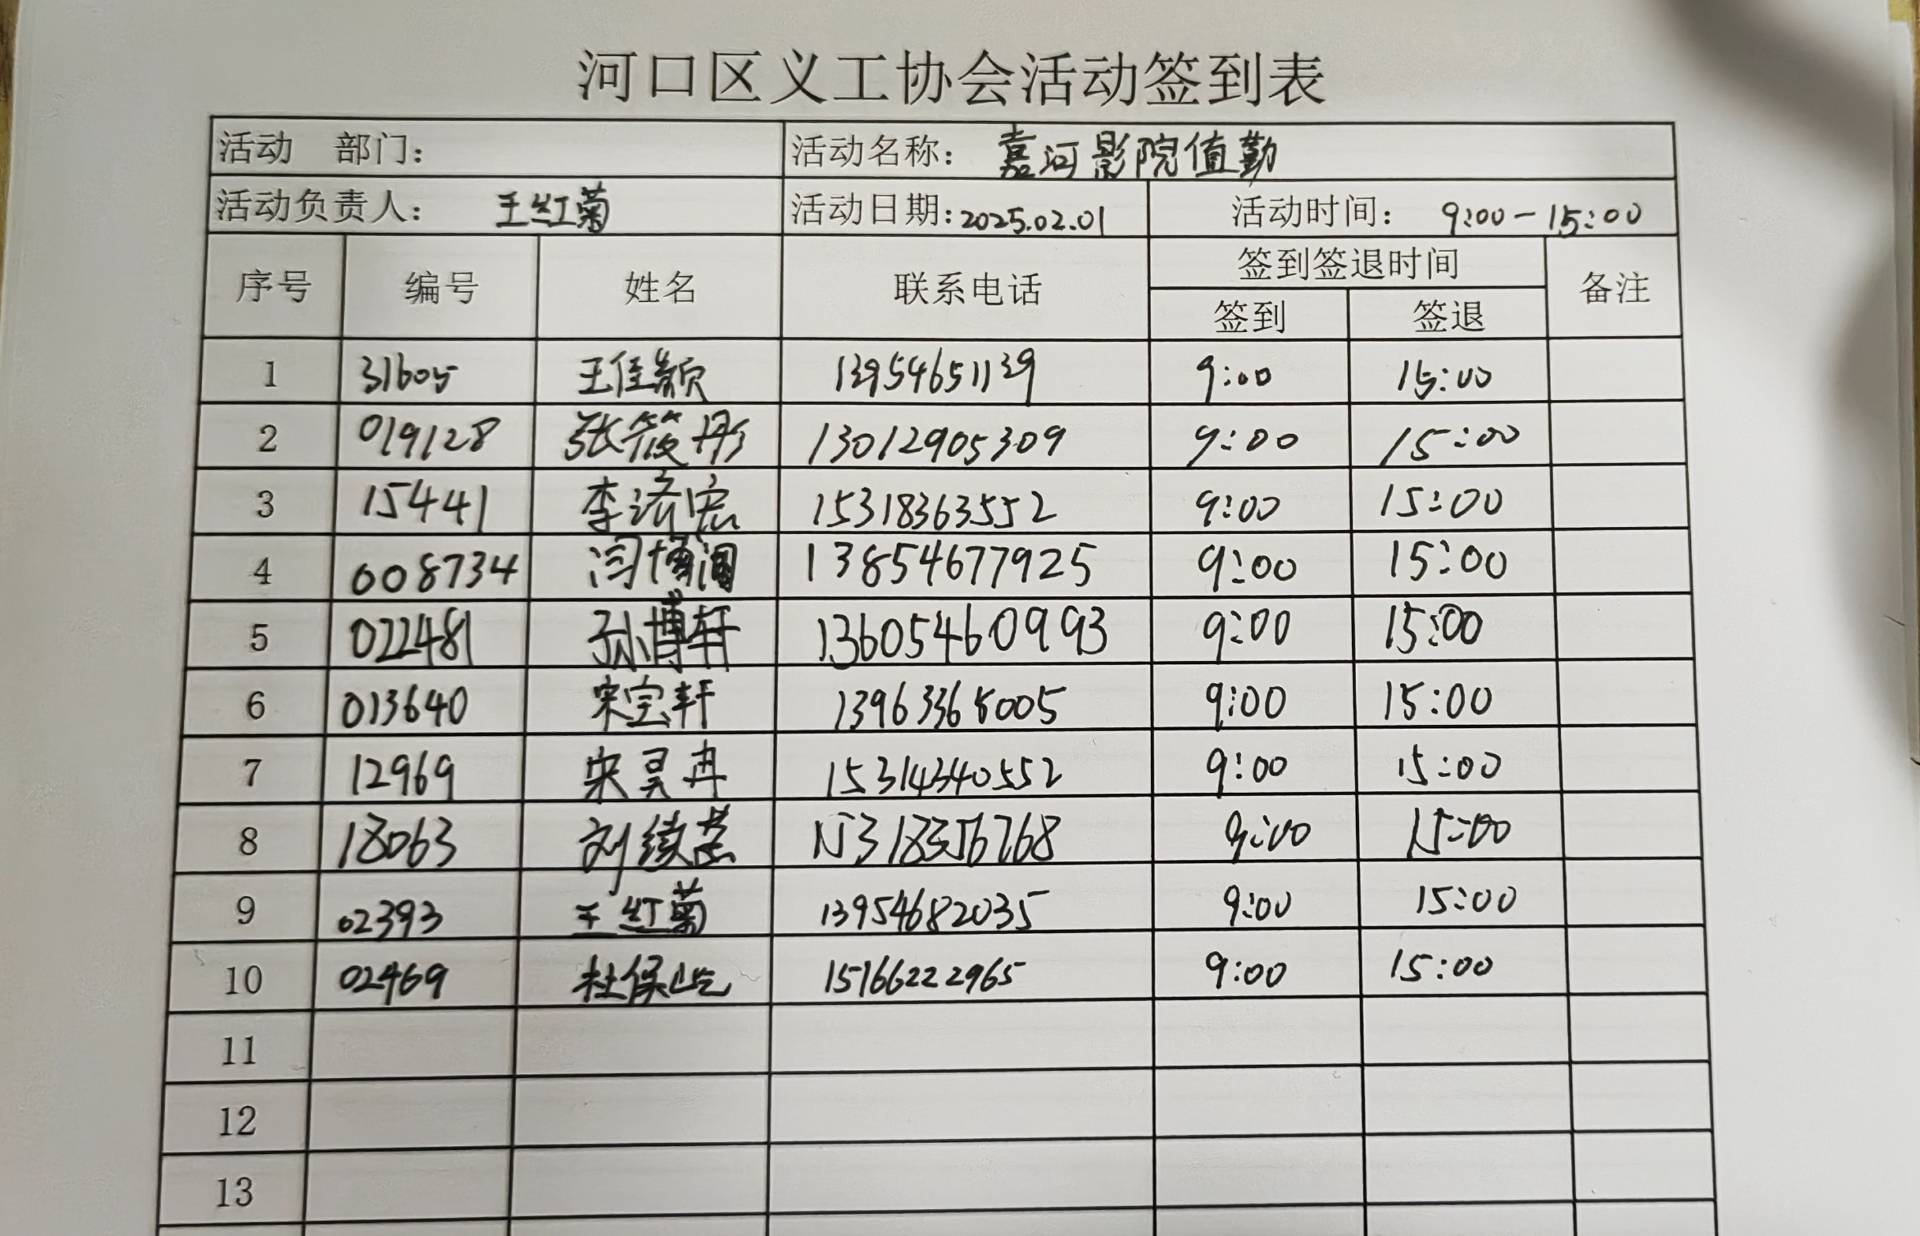 河口区义工协会活动签到表
活动 部门： 活动名称： 嘉河影院值勤
活动负责人： 王红菊 活动日期：2025.02.01 活动时间： 9:00-15:00
序号 编号 姓名 联系电话 签到签退时间 备注
签到 签退
1 31605 王佳颖 13954651139 9:00 15:00
2 019128 张筱彤 13012905309 9:00 15:00
3 15441 李济宏 15318363552 9:00 15:00
4 008734 闫博 13854677925 9:00 15:00
5 022481 孙博轩 13605460993 9:00 15:00
6 013640 宋宝轩 13963368005 9:00 15:00
7 12969 宋昊冉 15314340552 9:00 15:00
8 18063 刘续 9:00 15:00
9 02393 王红菊 13954682035 9:00 15:00
10 02469 杜保屹 15166222965 9:00 15:00
11
12
13